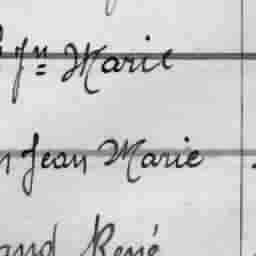 Jn Marie
Jean Marie
and René